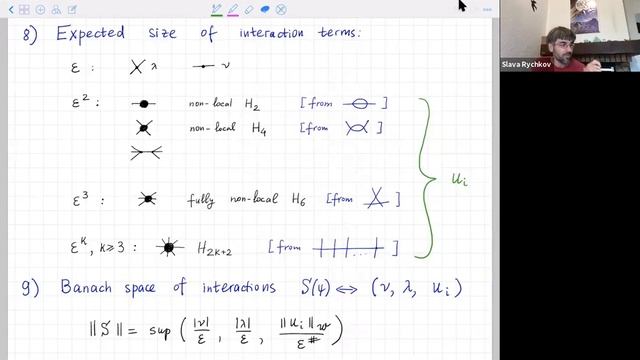 8) Expected size of interaction terms:
ε : λ ν
ε² : non-local H₂ [from ]
non-local H₄ [from ]
ε³ : fully non-local H₆ [from ]
uᵢ
εᵏ, k≥3 : H₂ₖ₊₂ [from ... ]
9) Banach space of interactions S(ψ) ⟺ (ν, λ, uᵢ)
||S|| = sup ( |ν|/ε , |λ|/ε , ||uᵢ||_w/ε^# )
Slava Rychkov